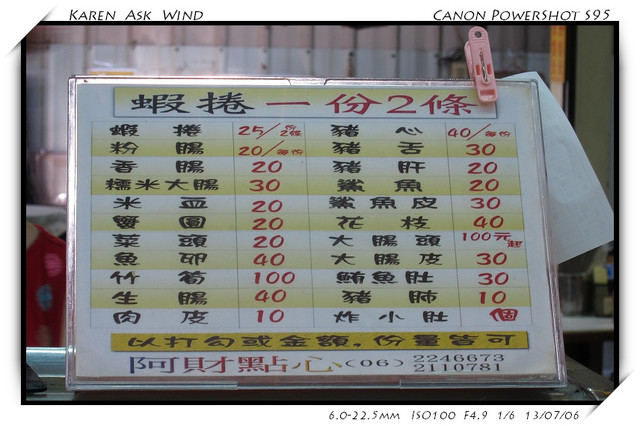 KAREN ASK WIND
CANON POWERSHOT S95
蝦捲一份2條
蝦捲 25/份2條 豬心 40/每份
粉腸 20/每份 豬舌 30
香腸 20 豬肝 20
糯米大腸 30 鯊魚 20
米血 20 鯊魚皮 30
蟹圓 20 花枝 40
菜頭 20 大腸頭 100元起
魚卵 40 大腸皮 30
竹筍 100 鮪魚肚 30
生腸 40 豬肺 10
肉皮 10 炸小肚 個
以打勾或金額,份量皆可
阿財點心(06)2246673
2110781
6.0-22.5MM ISO100 F4.9 1/6 13/07/06